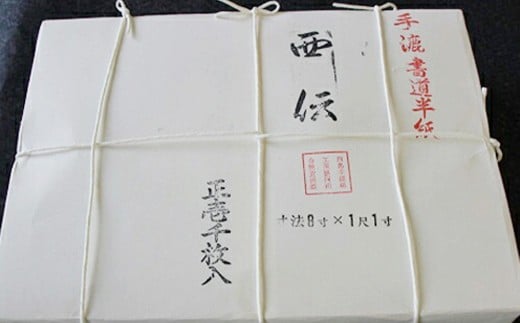 手漉書道半紙
西伝
寸法8寸×1尺1寸
正壱千枚入